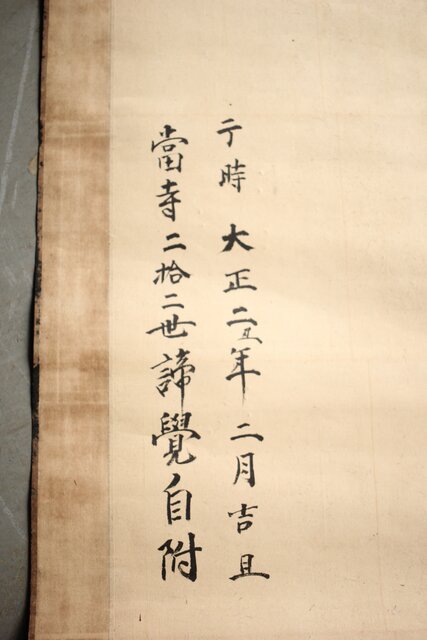 于時大正二丑年二月吉旦
當寺二拾二世諦覺自附